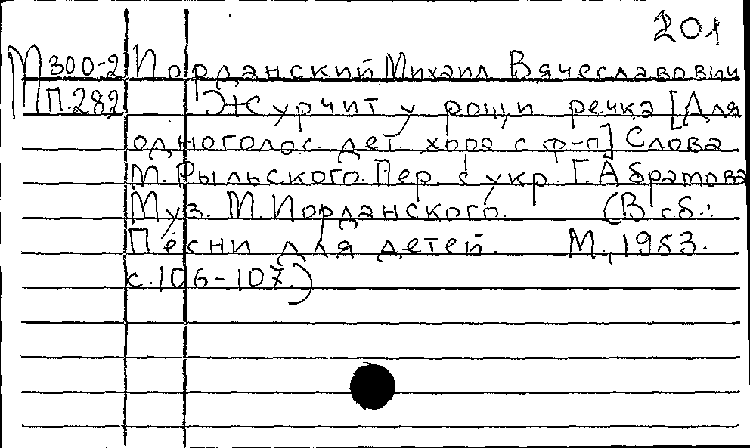 201
М 300-2 Иорданский Михаил Вячеславович
П-282 Журчит у рощи речка [Для
одноголос. дет. хора с ф-п] Слова
М. Рыльского. Пер. с укр. Г. Абрамова
Муз. М. Иорданского. (В сб.:
Песни для детей. М., 1953.
с. 106-107.)